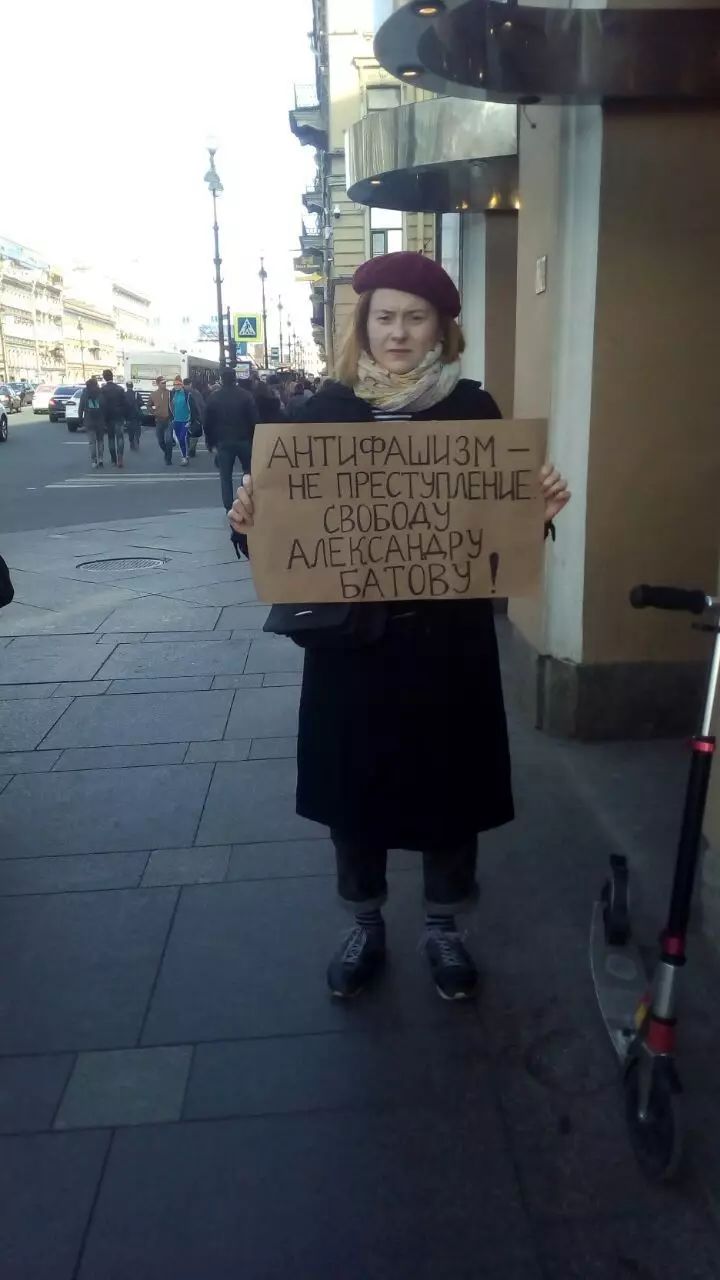 АНТИФАШИЗМ –
НЕ ПРЕСТУПЛЕНИЕ.
СВОБОДУ
АЛЕКСАНДРУ
БАТОВУ!